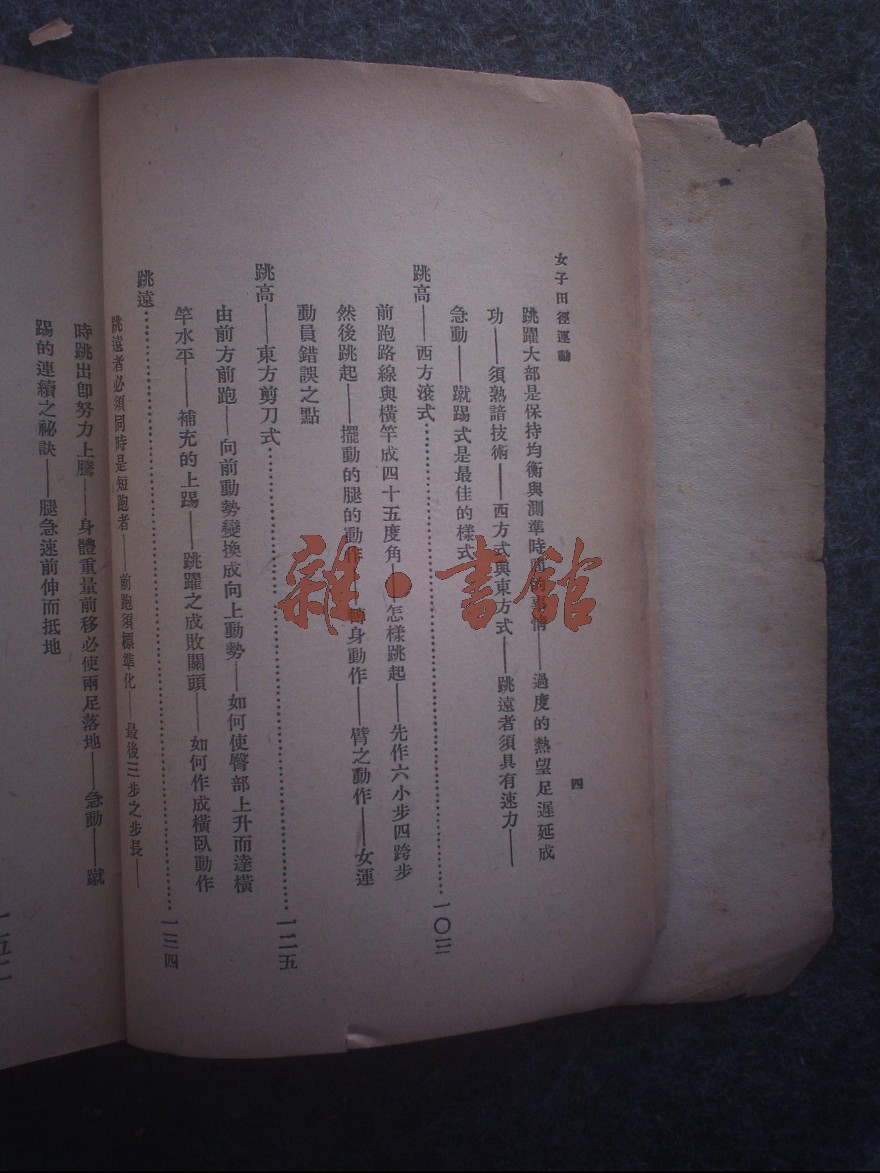 女子田徑運動
四
跳躍大部是保持均衡與測準時間的事情——過度的熱望足遲延成
功——須熟諳技術——西方式與東方式——跳遠者須具有速力——
急動——蹴踢式是最佳的樣式
跳高——西方滾式………一〇三
前跑路線與橫竿成四十五度角——怎樣跳起——先作六小步四跨步
然後跳起——擺動的腿的動作——身動作——臂之動作——女運
動員錯誤之點
跳高——東方剪刀式………一二五
由前方前跑——向前動勢變換成向上動勢——如何使臀部上升而達橫
竿水平——補充的上踢——跳躍之成敗關頭——如何作成橫臥動作
跳遠………一三四
跳遠者必須同時是短跑者——前跑須標準化——最後三步之步長——
時跳出卽努力上騰——身體重量前移必使兩足落地——急動——蹴
踢的連續之祕訣——腿急速前伸而抵地
雜·書館